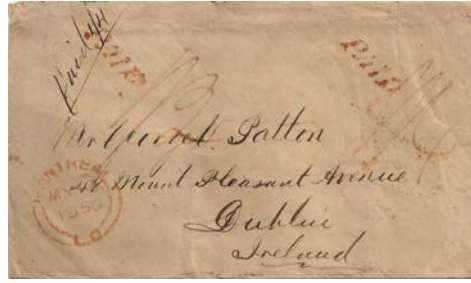 Paid
PAID
PAID
Mr George Patton
Mount Pleasant Avenue
Dublin
Ireland
MONTREAL
MY
1850
L.C